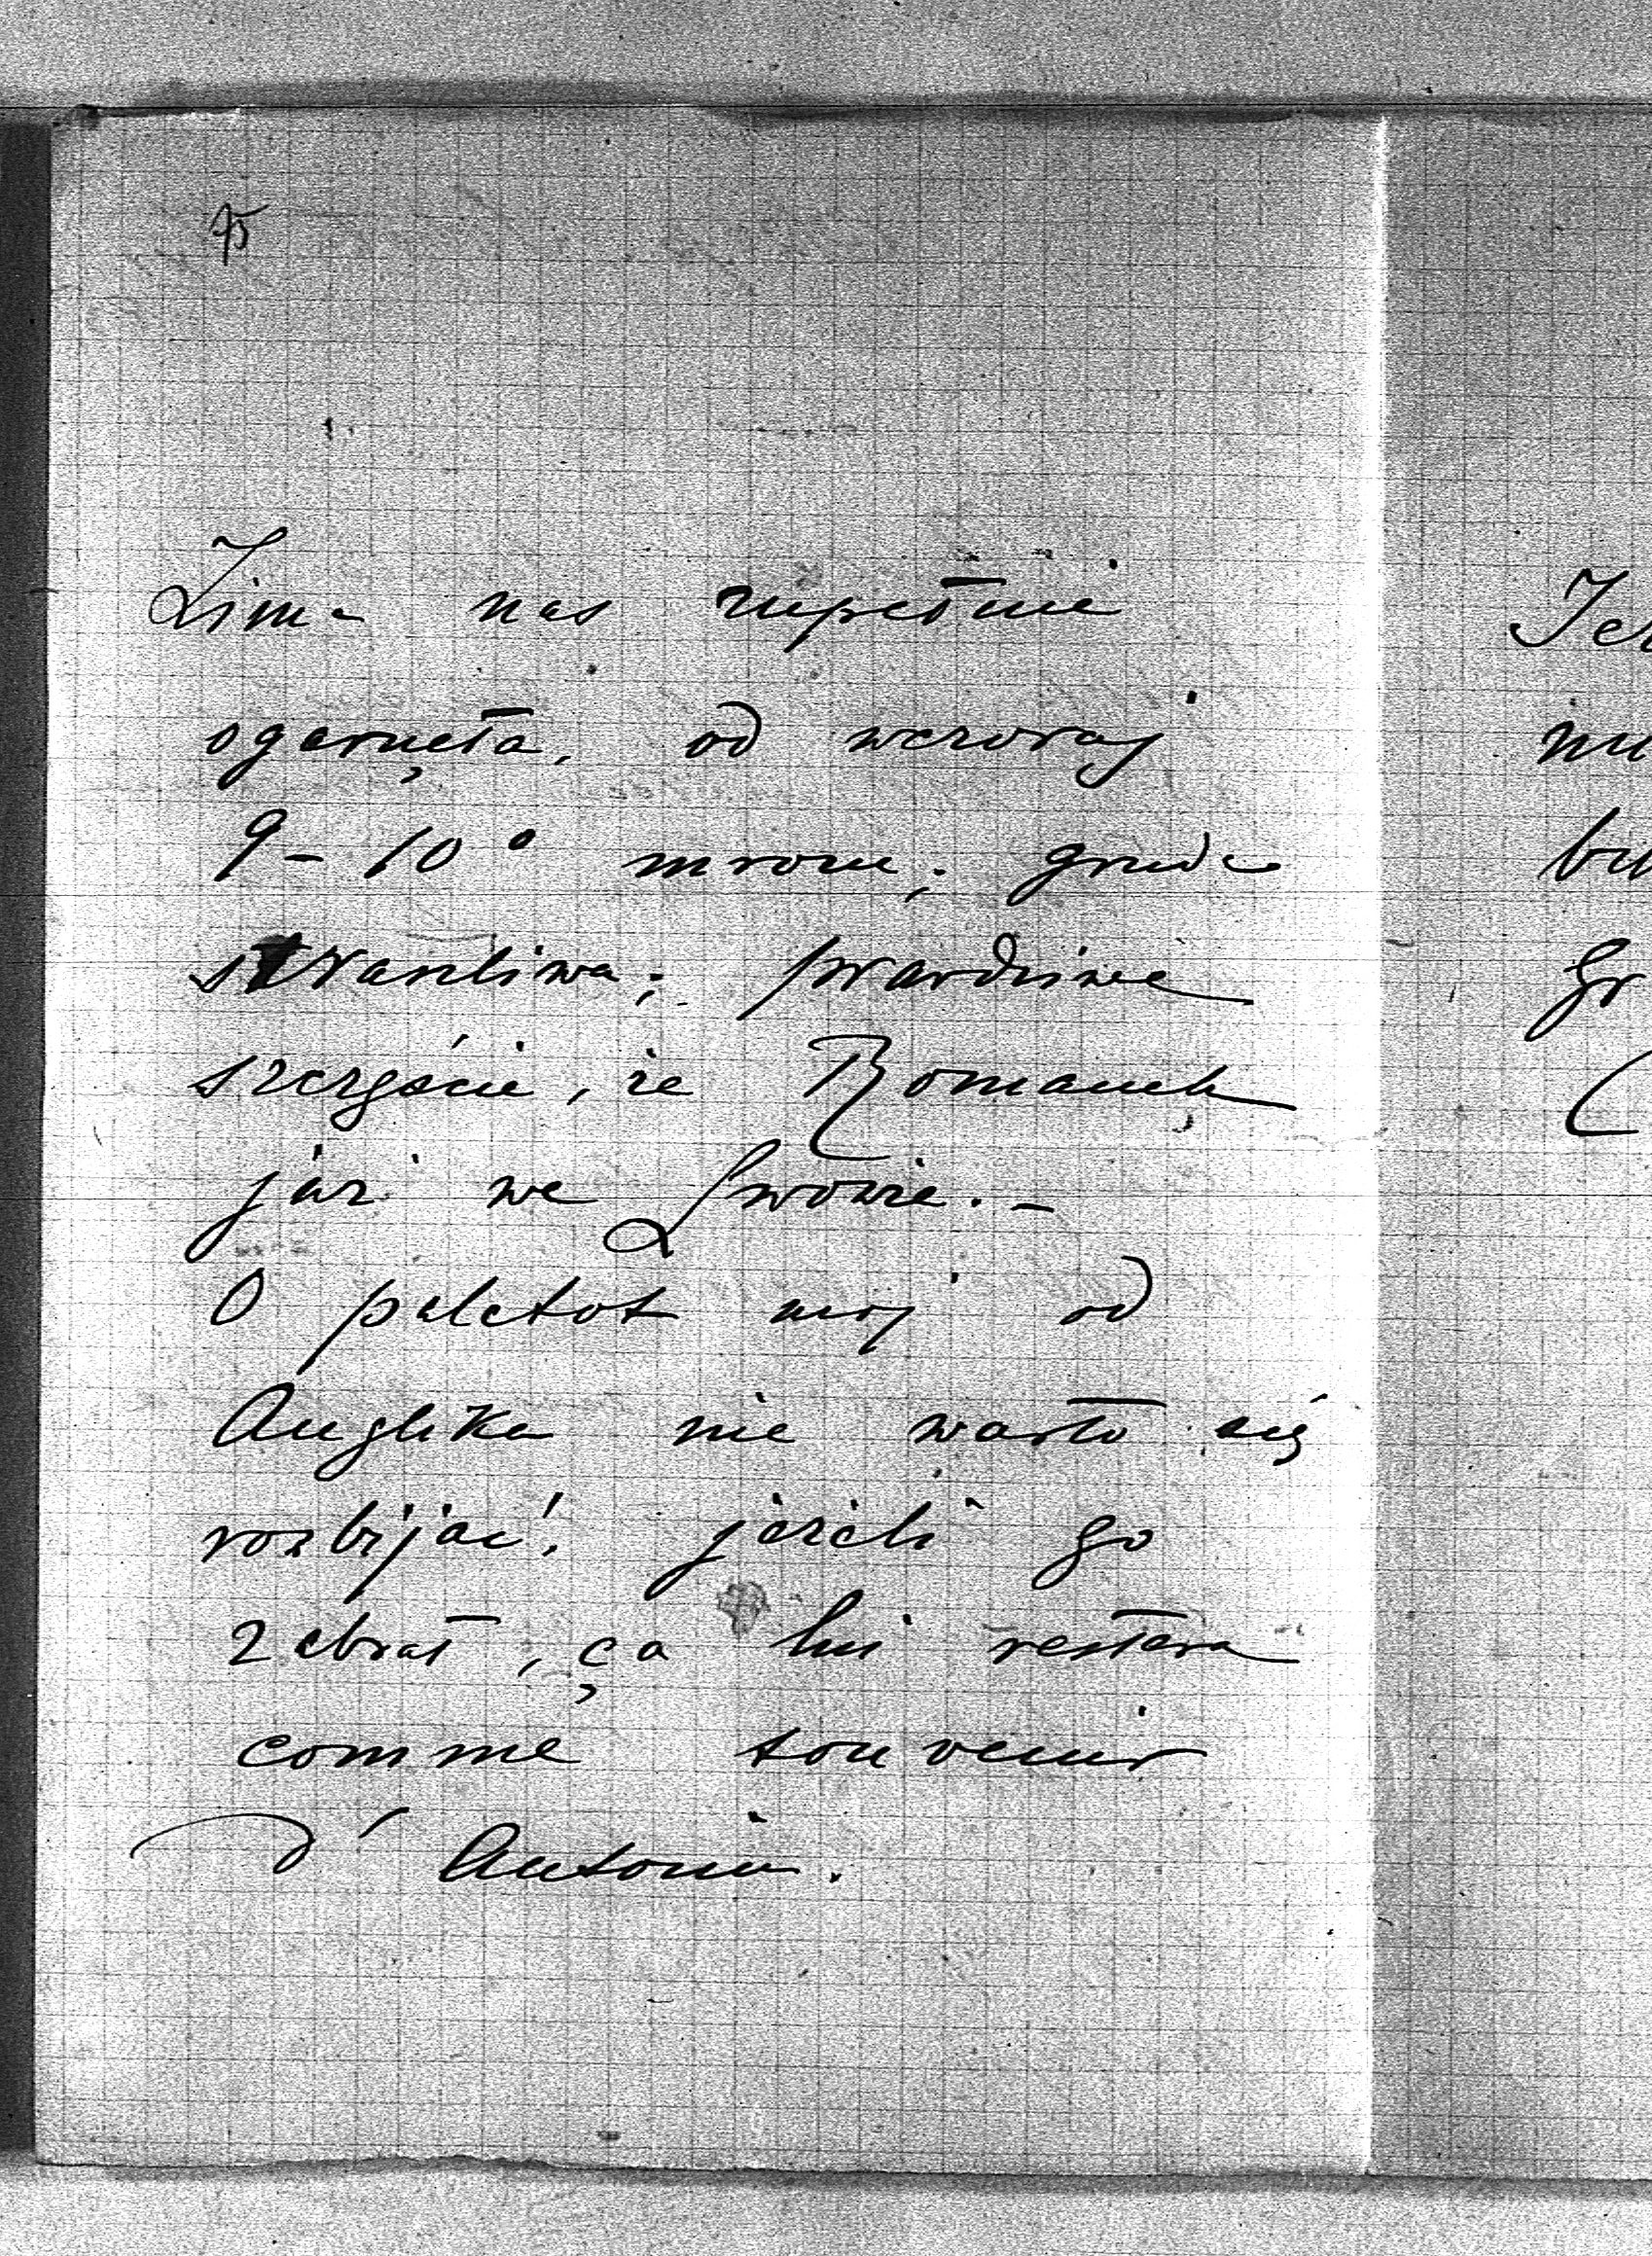 Zima nas zupełnie
ogarnęła, od wczoraj
9-10° mrozu; gruda
straszliwa; prawdziwe
szczęście, że Romanek
już we Lwowie.-
O paletot mój od
Anglika nie warto się
rozbijać! jeżeli go
zebrał, ça lui restera
comme souvenir
d'Antonin.